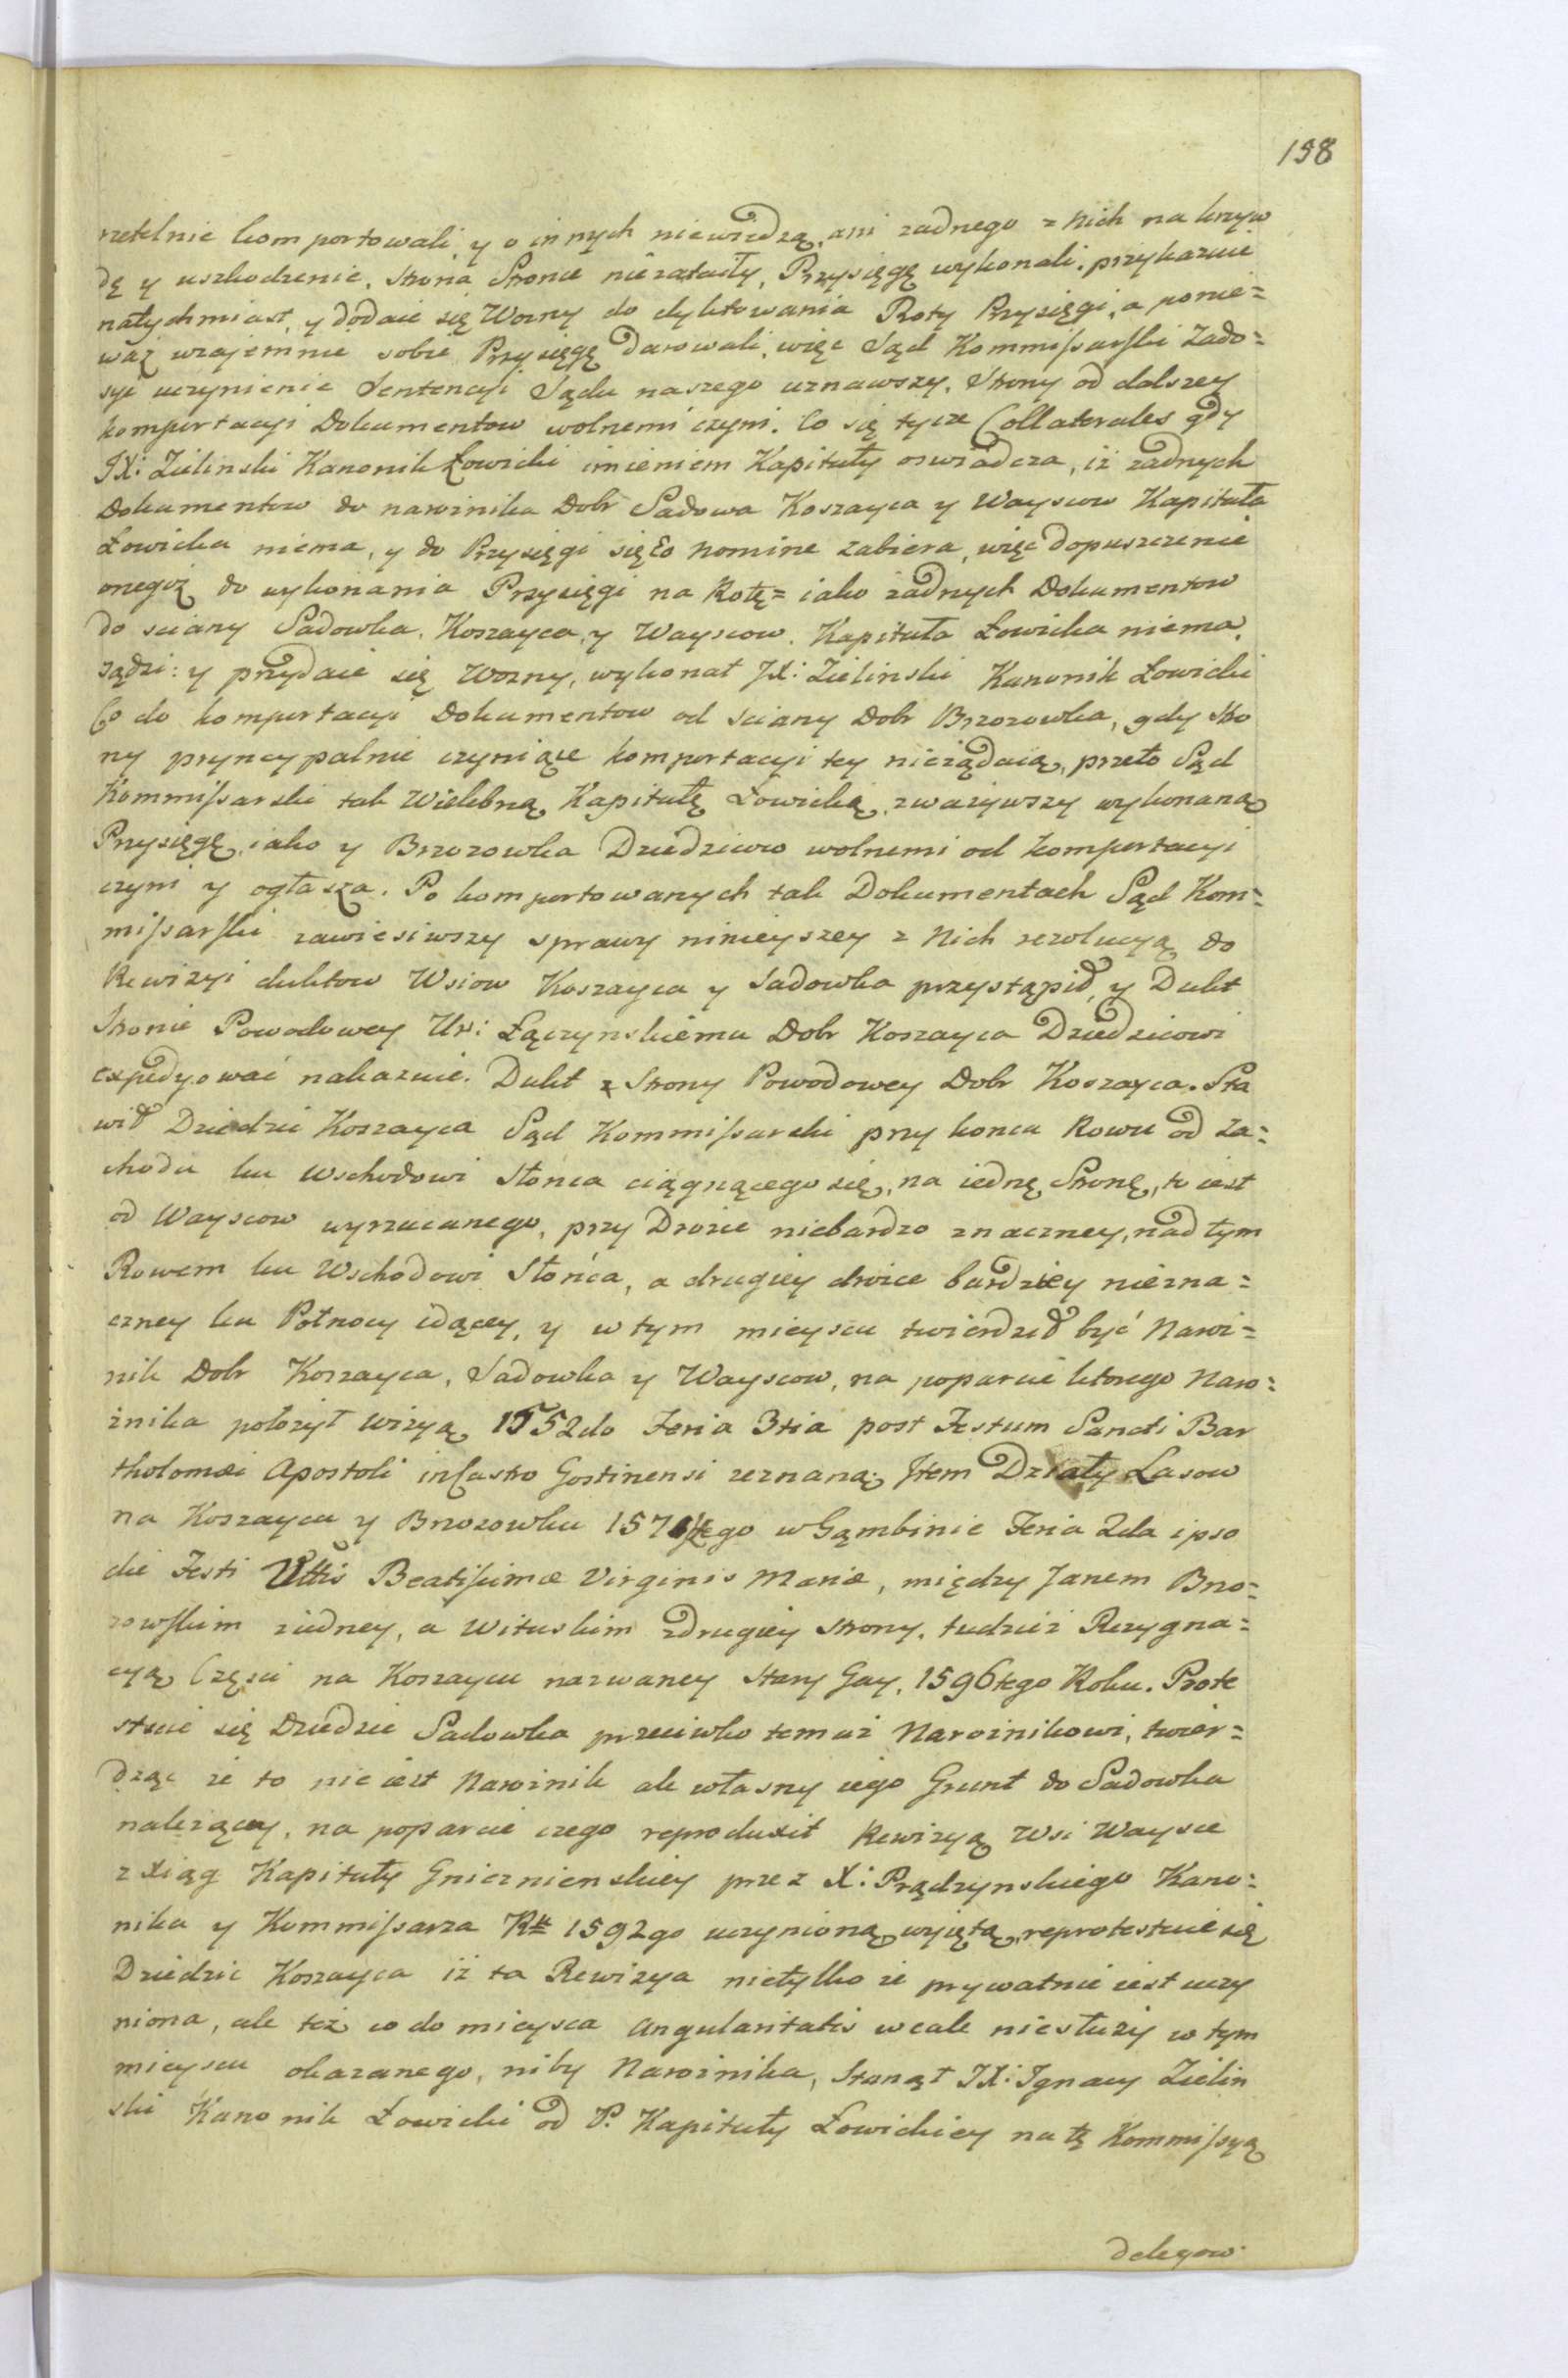 158
rzetelnie komportowali, y o innych niewiedzą, ani zadnego z Nich na krzyw
dę y uszkodzenie, Strona Stronie niezataiły, Przysięgę wykonali. przykazuie
natychmiast, y dodaie się Wozny do dyktowania Roty Przysięgi, a ponie=
waż wzajemnie sobie Przysięgę darowali, więc Sąd Kommissarski Zado=
syć uczynienie Sentencyi Sądu naszego uznawszy, Strony od dalszey
komportacyi Dokumentow wolnemi czyni. Co się tycze Collaterales gdy
JX: Zielinski Kanonik Łowicki imieniem Kapituły oswiadcza, iż zadnych
Dokumentow do narożnika Dobr Sadowa Koszayca y Wayscow Kapituła
Łowicka niema, y do Przysięgi się Eo Nomine zabiera, więc dopuszczenie
onegoż do wykonania Przysięgi na Rotę= iako żadnych Dokumentow
do sciany Sadowka, Koszayca, y Wayscow. Kapituła Łowicka niema,
sądzi: y przydaie się Wozny, wykonał JX: Zielinski Kanonik Łowicki
Co do komportacyi Dokumentow od Sciany Dobr Brzozowka, gdy Stro
ny pryncypalnie czyniące komportacyi tey nieżądaią, przeto Sąd
Kommissarski tak Wielebną Kapitułę Łowicką, zważywszy wykonaną
Przysięgę, iako y Brzozowka Dziedzicow wolnemi od komportacyi
czyni y ogłasza. Po komportowanych tak Dokumentach Sąd Kom=
missarski zawiesiwszy sprawy ninieyszey z Nich rezolucyą do
Rewizyi duktow Wsiow Koszayca y Sadowka przystąpił, y Dukt
Stronie Powodowey Ur: Łączynskiemu Dobr Koszayca Dziedzicowi
expedyować nakazuie. Dukt z Strony Powodowey Dobr Koszayca. Sta
wił Dziedzic Koszayca Sąd Kommissarski przy koncu Rowu od Za=
chodu ku Wschodowi Słonca ciągnącego się, na iednę Stronę, to iest
od Wayscow wyrzucanego, przy Drozie niebardzo znaczney, nad tym
Rowem ku Wschodowi Słońca, a drugiey drożce bardziey niezna=
czney ku Połnocy idącey, y w tym mieyscu twierdził być Naroż=
nik Dobr Koszayca, Sadowka y Wayscow, na poparcie ktorego Naro=
żnika położył wizyą 1552do Feria 3tia post Festum Sancti Bar
tholomæi Apostoli in Castro Gostinensi zeznaną; Item Działy Lasow
na Koszaycu y Brzozowku tego w Gąmbinie Feria 2da ipso
die Festi Beatissimæ Virginis Mariæ, między Janem Brzo=
zowskim ziedney, a Wituskim zdrugiey strony, tudzież Rezygna=
cyą Części na Koszaycu nazwaney Stary Gay, 1596tego Roku. Prote
stuie się Dziedzic Sadowka przeciwko temuż Narożnikowi, twier=
dząc że to nie iest Narożnik ale własny iego Grunt do Sadowka
należący, na poparcie czego reproduxit Rewizyą Wsi Waysce
z Xiąg Kapituły Gnieznienskiey przez X: Prądzynskiego Kano=
nika y Kommissarza Rku 1592go uczynioną, wyiętą, reprotestuie się
Dziedzic Koszayca iż ta Rewizya nietylko że prywatnie iest uczy
niona, ale też co do mieysca Angularitatis wcale niesłuży w tym
mieyscu okazanego, niby Narożnika, Stanął JX: Ignacy Zielin
ski Kanonik Łowicki od P. Kapituły Łowickiey na tę Kommissyą
delegow